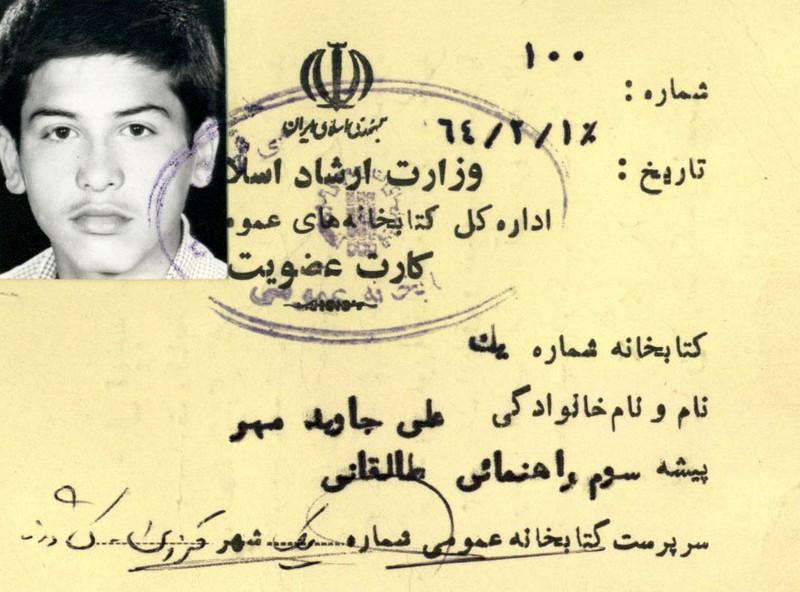 شماره : ۱۰۰
جمهوری اسلامی ایران
تاریخ : ٦٤/٢/١٪
وزارت ارشاد اسلا
اداره کل کتابخانه‌های عمو
کارت عضویت
کتابخانه شماره یك
نام و نام خانوادگی علی جاوید مهر
پیشه سوم راهنمائی طالقانی
سرپرست کتابخانه عمومی شماره یک شهر